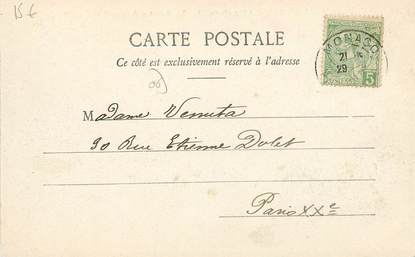 15€
CARTE POSTALE
Ce côté est exclusivement réservé à l'adresse
MONACO
21
29
5
06
Madame Vernita
90 Rue Etienne Dolet
Paris XXe